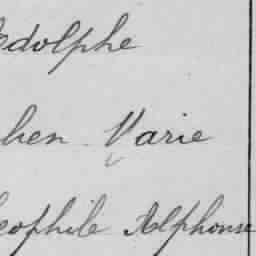 Adolphe
hen Varie
eophile Alphonse